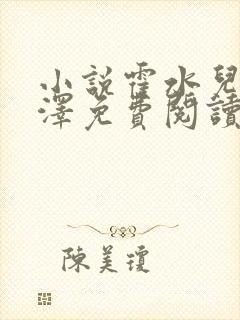 小說霍水兒
澤免費閱讀
陳美瓊